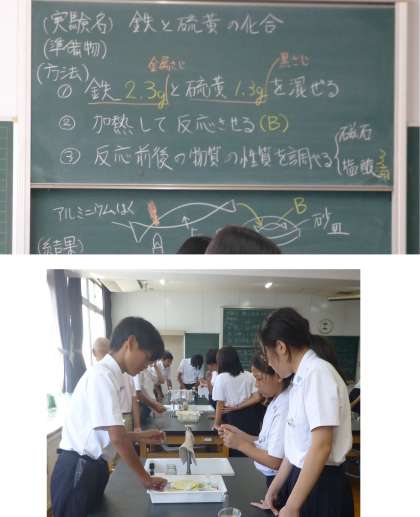 (実験名) 鉄と硫黄の化合
(準備物)
(方法)
金属さじ 黒さじ
① 鉄 2.3gと硫黄 1.3gを混ぜる
② 加熱して反応させる(B)
③ 反応前後の物質の性質を調べる 磁石 塩酸
アルミニウムはく
B
砂皿
(結果)